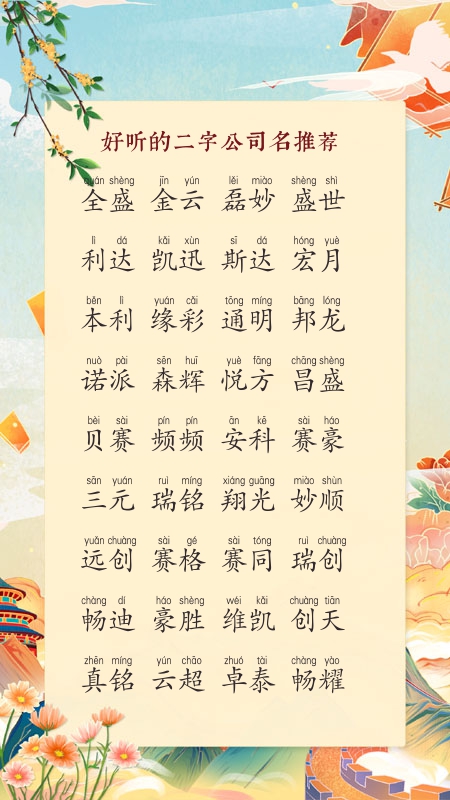 好听的二字公司名推荐
quán shèng jīn yún lěi miào shèng shì
全盛 金云 磊妙 盛世
lì dá kǎi xùn sī dá hóng yuè
利达 凯迅 斯达 宏月
běn lì yuán cǎi tōng míng bāng lóng
本利 缘彩 通明 邦龙
nuò pài sēn huī yuè fāng chāng shèng
诺派 森辉 悦方 昌盛
bèi sài pín pín ān kē sài háo
贝赛 频频 安科 赛豪
sān yuán ruì míng xiáng guāng miào shùn
三元 瑞铭 翔光 妙顺
yuǎn chuàng sài gé sài tóng ruì chuàng
远创 赛格 赛同 瑞创
chàng dí háo shèng wéi kǎi chuàng tiān
畅迪 豪胜 维凯 创天
zhēn míng yún chāo zhuó tài chàng yào
真铭 云超 卓泰 畅耀